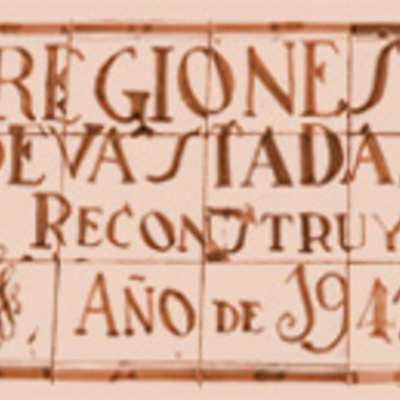 REGIONES
DEVASTADAS
RECONSTRUY
AÑO DE 194